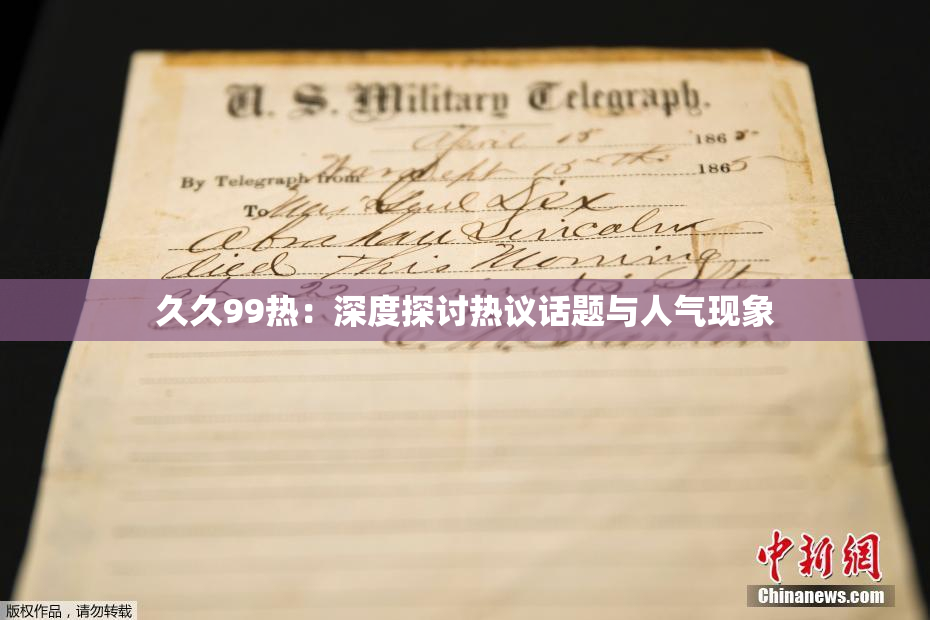 U. S. Military Telegraph.
April 15 1865
By Telegraph from War Dept 15th 1865
To Maj Genl Dix
Abraham Lincoln
died This Morning
22 minutes after
久久99热：深度探讨热议话题与人气现象
E. M. Stanton
中新網
Chinanews.com
版权作品，请勿转载